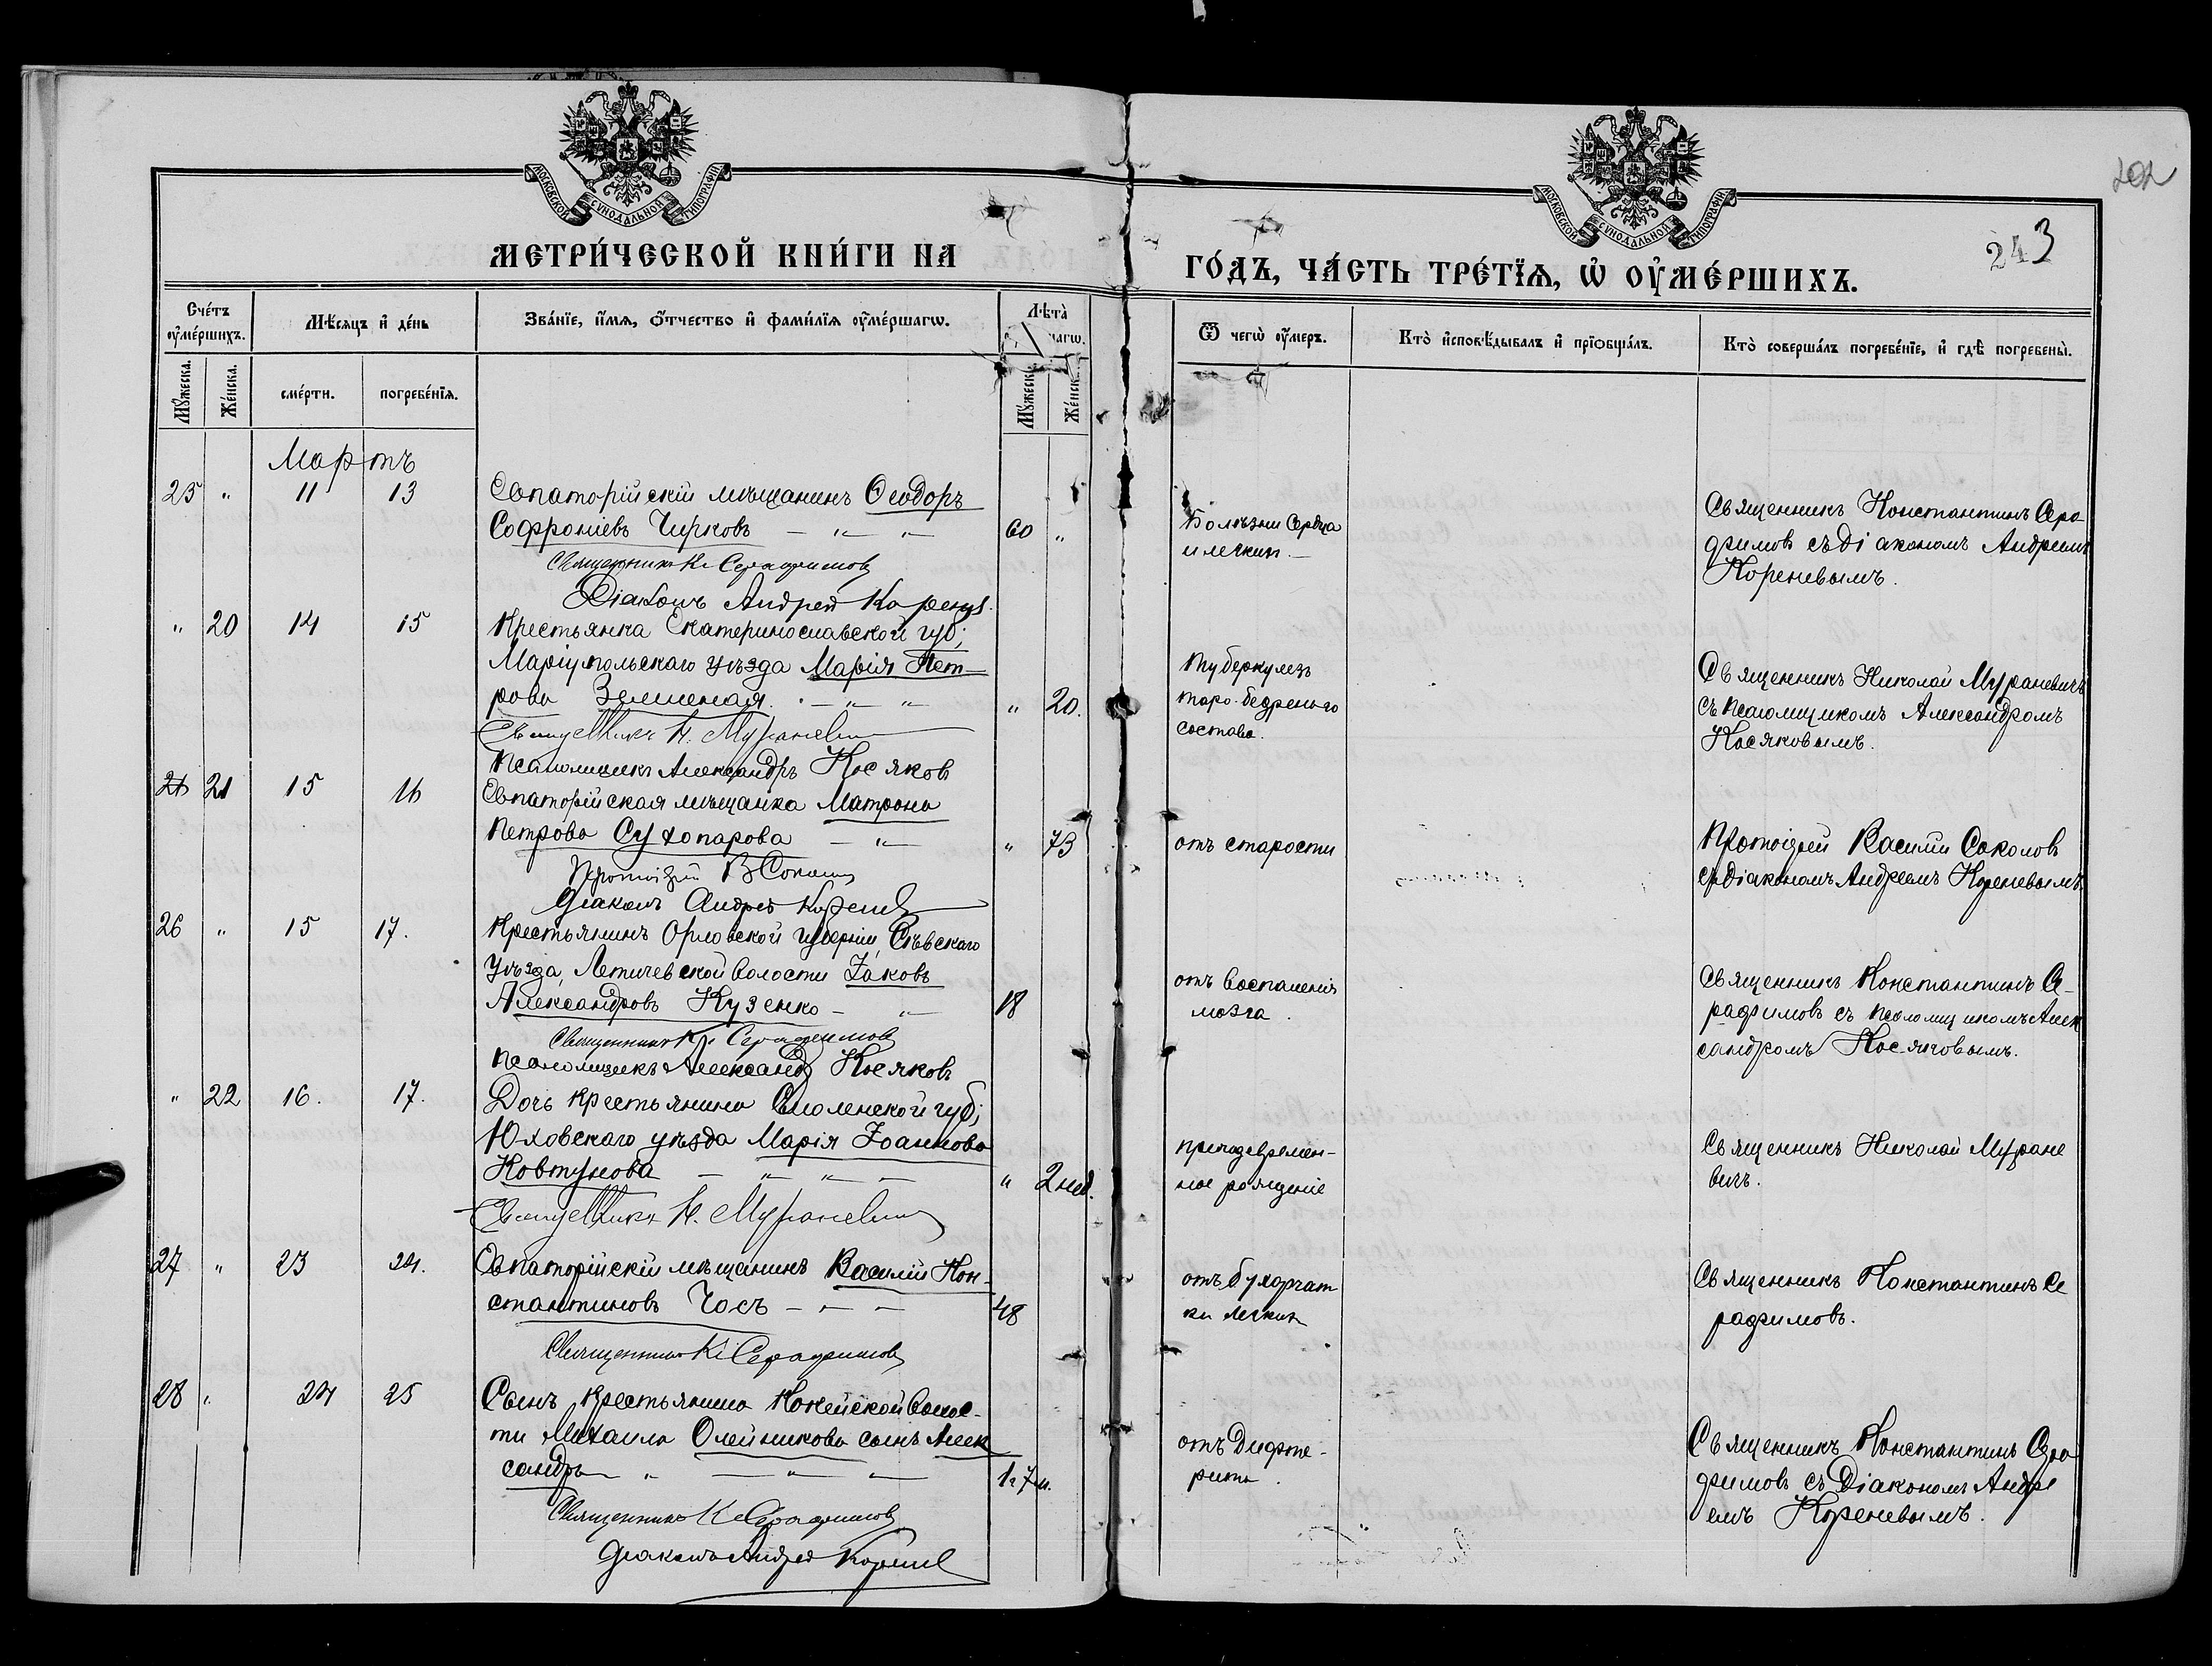 202
243
МОСКОВСКОЙ СѴНОДАЛЬНОЙ ТИПОГРАФІИ
МОСКОВСКОЙ СѴНОДАЛЬНОЙ ТИПОГРАФІИ
МЕТРИ́ЧЕСКОЙ КНИ́ГИ НА
ГО́ДЪ, ЧА́СТЬ ТРЕ́ТЇѦ, Ѡ҆ ОУ҆МЕ́РШИХЪ.
Сче́тъ оу҆ме́ршихъ.
Мѣ́сяцъ и҆ де́нь
Зва́нїе, и҆́мѧ, ѻ҆́тчество и҆ фами́лїѧ оу҆ме́ршагѡ.
Лѣ́та
Ѿ чегѡ̀ оу҆́меръ.
Кто̀ и҆сповѣ́дывалъ и҆ прїѻбща́лъ.
Кто̀ соверша́лъ погребе́нїе, и҆ гдѣ̀ погребены̀.
Мꙋ́жеска.
Же́нска.
сме́рти.
погребе́нїѧ.
Мꙋ́жеска
Же́нска.
Мартъ
25 " 11 13 Евпаторійскій мѣщанинъ Ѳеодоръ
Софроніевъ Чирковъ — " — " 60 "
Священникъ К. Серафимовъ
Діаконъ Андрей Коренев
Болѣзни сердца
и легкихъ.—
Священникъ Константинъ Сера
фимовъ съ діакономъ Андреемъ
Кореневымъ.
" 20 14 15 Крестьянка Екатеринославской губ;
Маріупольскаго уѣзда Марія Пет-
рова " 20.
Священникъ Н. Мураневич
Псаломщикъ Александръ Косяков
Туберкулезъ
таро-бедреннаго
состава.
Священникъ Николай Мураневичъ
съ псаломщикомъ Александромъ
Косяковымъ.
21 21 15 16 Евпаторійская мѣщанка Матрона
Петрова Сухопарова — " " 73
Протоіерей В Соколов
Діаконъ Андрей Коренев
отъ старости
Протоіерей Василій Соколовъ
съ діакономъ Андреемъ Кореневымъ.
26 " 15 17. Крестьянинъ Орловской губерніи, Сѣвскаго
уѣзда, волости Іаковъ
Александровъ Кузенко — " 18
Священникъ К. Серафимовъ
Псаломщикъ Александръ Косяковъ
отъ воспаленія
мозга.
Священникъ Константинъ Се-
рафимовъ съ псаломщикомъ Алек
сандромъ Косяковымъ.
" 22 16. 17. Дочь крестьянина Смоленской губ;
Юховскаго уѣзда Марія Іоаннова
Ковтунова — " " — " 2 нед.
Священникъ Н. Мураневич
преждевремен-
ное рожденіе
Священникъ Николай Муране
вичъ.
27 " 23 24. Евпаторійскій мѣщанинъ Василій Кон-
стантиновъ Чосъ — " — 48
Священникъ К. Серафимовъ
отъ бугорчат
ки легкихъ
Священникъ Константинъ Се
рафимовъ.
28 " 24 25 Сынъ крестьянина волос-
ти Михаила Олейникова сынъ Алек
сандръ " — " — 1 г 7 м.
Священникъ К. Серафимовъ
Діаконъ Андрей Коренев
отъ Дифте-
рита.
Священникъ Константинъ Сера
фимовъ съ Діакономъ Андре
емъ Кореневымъ.